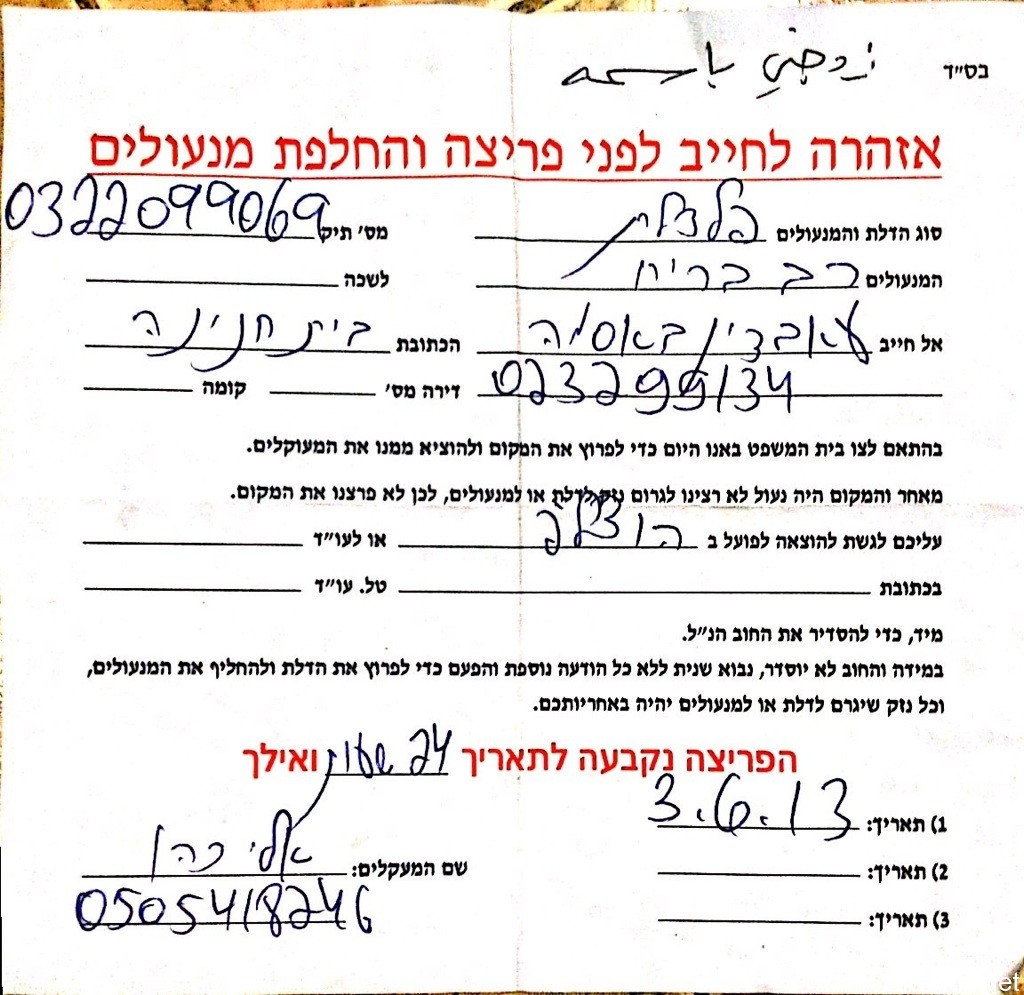 בס"ד
אזהרה לחייב לפני פריצה והחלפת מנעולים
סוג הדלת והמנעולים פלדלת מס' תיק 0322099069
המנעולים רב בריח לשכה
אל חייב עאבדין באסמה הכתובת בית חנינה
023299134 דירה מס' קומה
בהתאם לצו בית המשפט באנו היום כדי לפרוץ את המקום ולהוציא ממנו את המעוקלים.
מאחר והמקום היה נעול לא רצינו לגרום נזק לדלת או למנעולים, לכן לא פרצנו את המקום.
עליכם לגשת להוצאה לפועל ב או לעו"ד
בכתובת טל. עו"ד
מיד, כדי להסדיר את החוב הנ"ל.
במידה והחוב לא יוסדר, נבוא שנית ללא כל הודעה נוספת והפעם כדי לפרוץ את הדלת ולהחליף את המנעולים,
וכל נזק שיגרם לדלת או למנעולים יהיה באחריותכם.
הפריצה נקבעה לתאריך 24 שעות ואילך
1) תאריך: 3.6.13
שם המעקלים: אלי כהן
2) תאריך:
0505418246
3) תאריך:
et